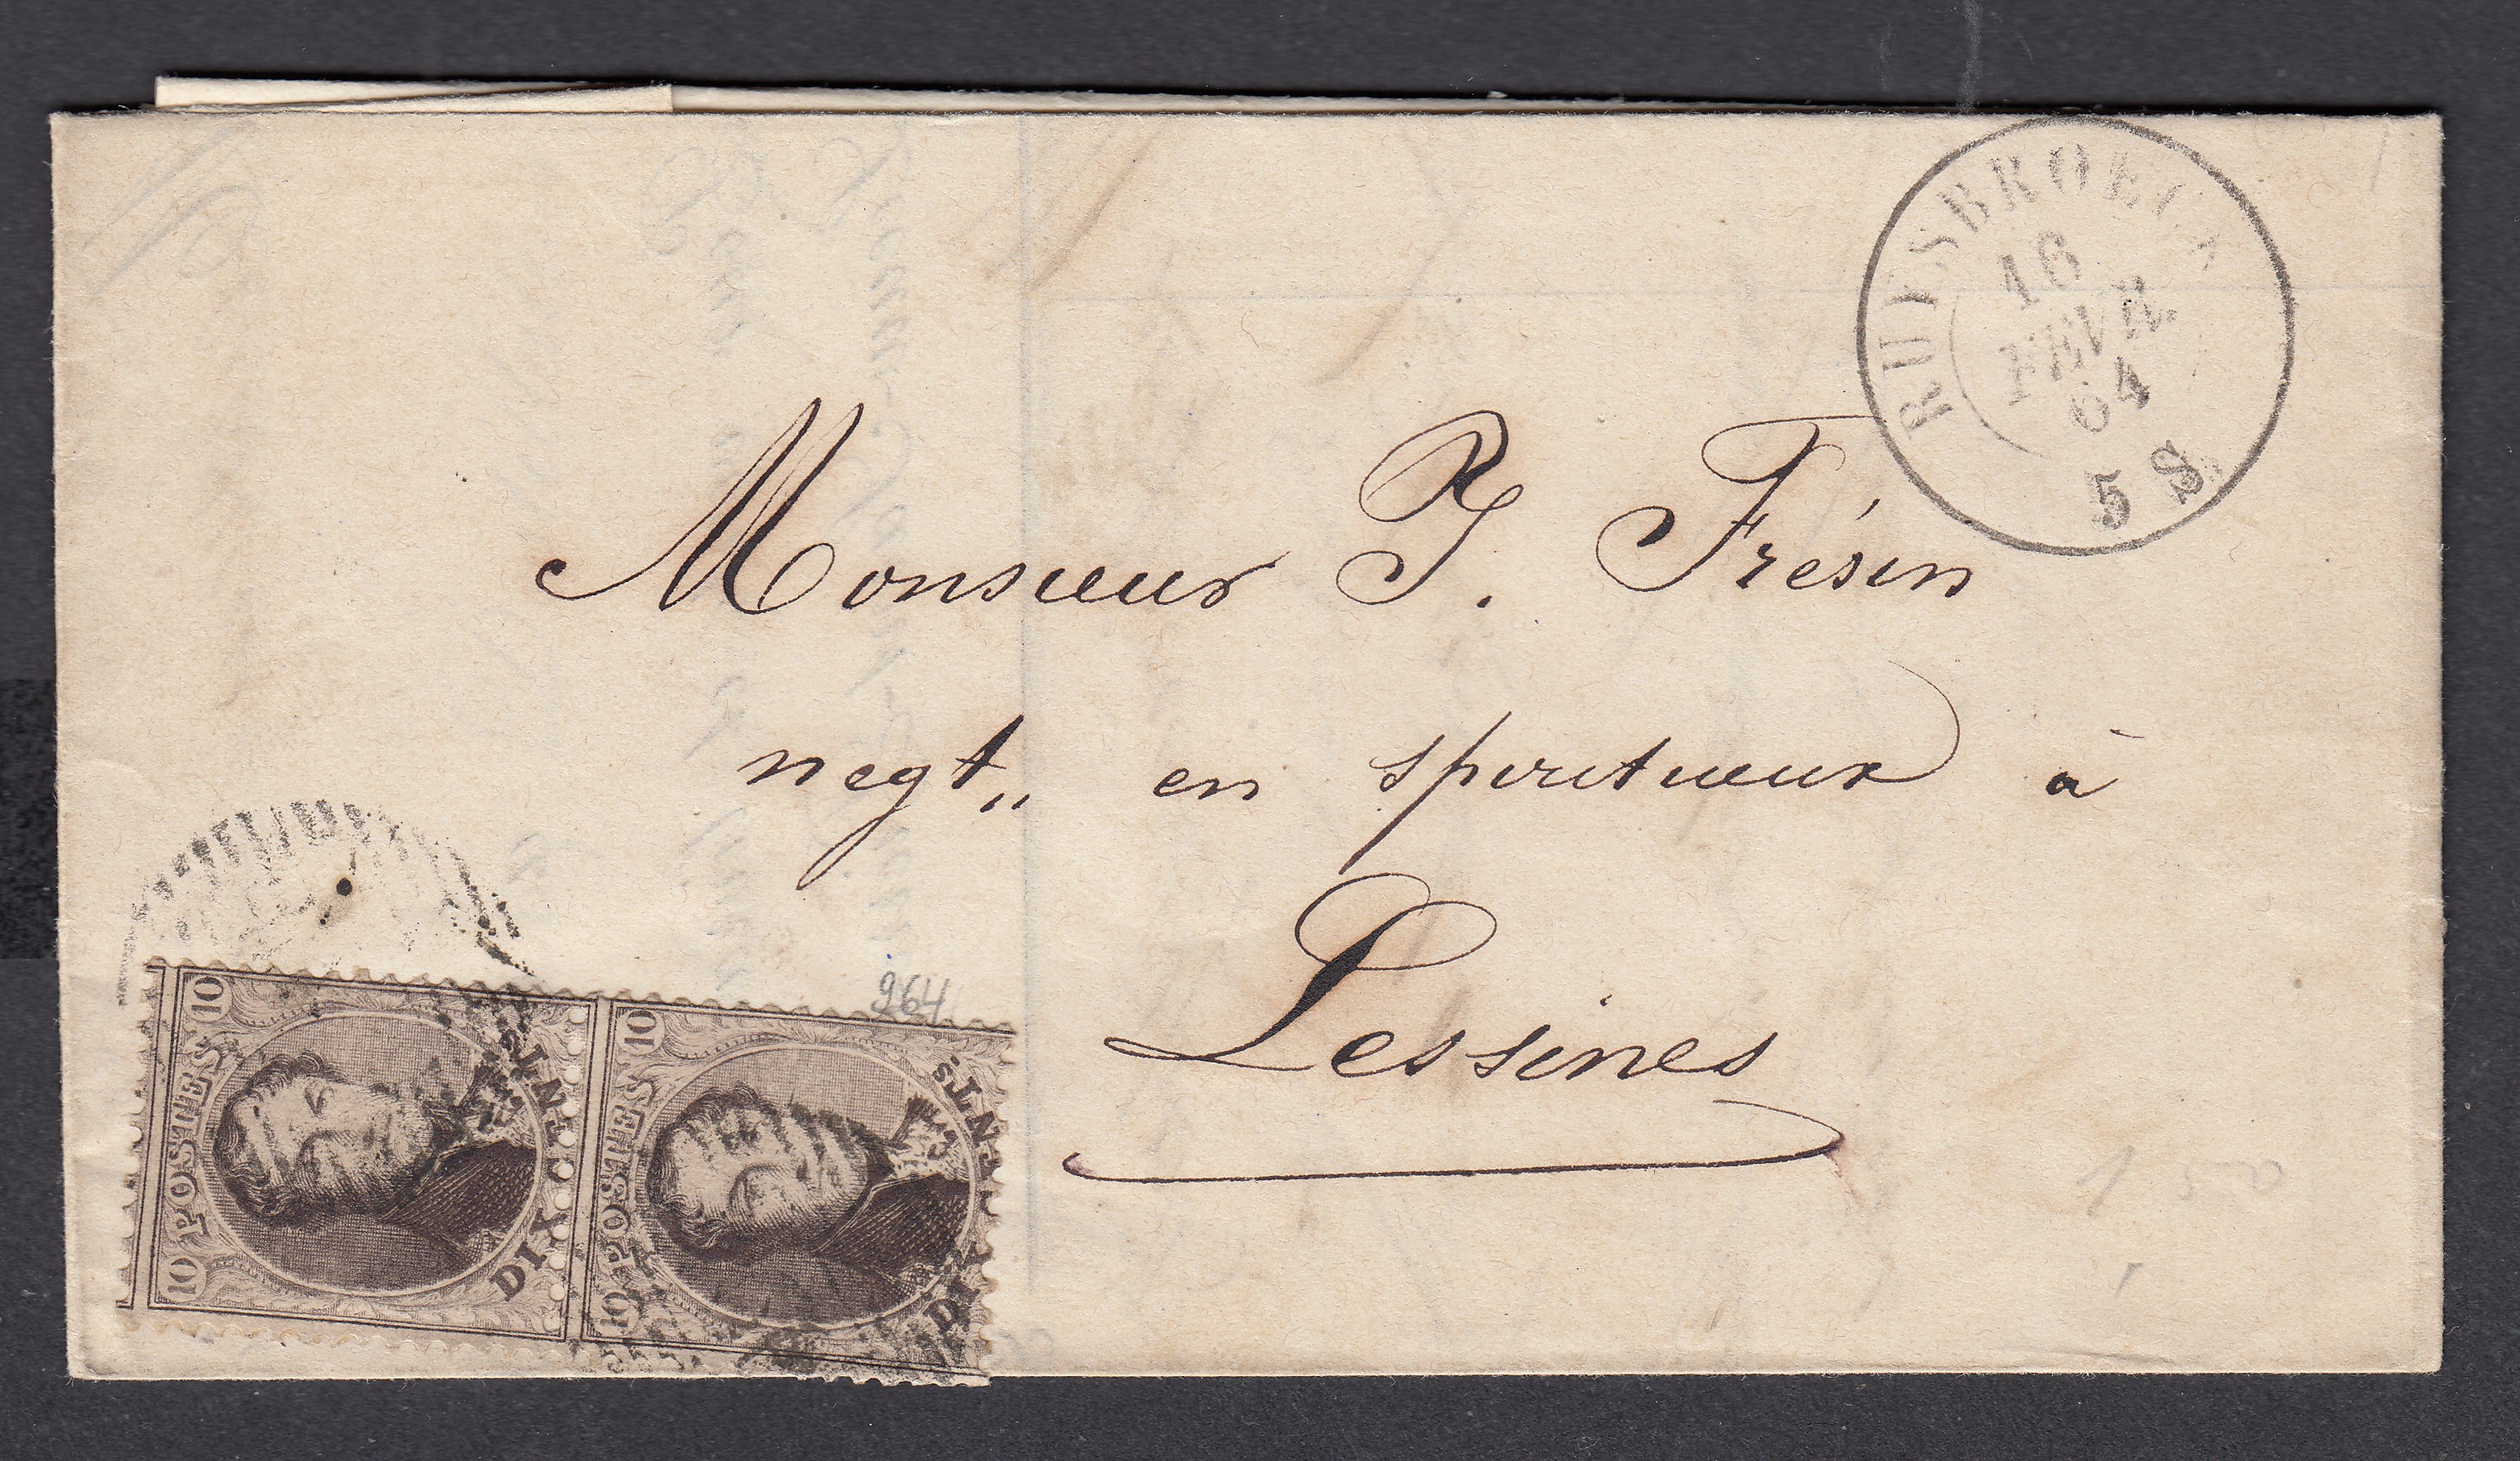 RUESBROECK
16
FEVR.
64
5 S
Monsieur P. Frésin
negt„ en spiritueux à
Lessines
264
10 POSTES 10
DIX CENTS.
10 POSTES 10
DIX CENTS.